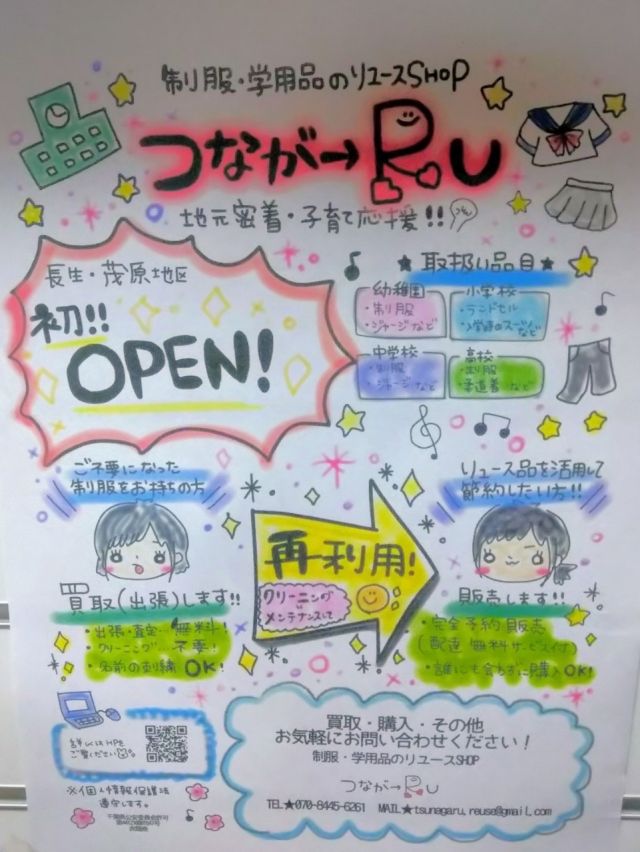 制服・学用品のリユースSHOP
つなが→Ru
地元密着・子育て応援!!
長生・茂原地区
初!!
OPEN!
★取扱い品目★
幼稚園
・制服
・ジャージなど
小学校
・ランドセル
・入学時のスーツなど
中学校
・制服
・ジャージなど
高校
・制服
・柔道着など
ご不要になった
制服をお持ちの方
リユース品を活用して
節約したい方!!
再利用!
クリーニング
メンテナンスして
買取(出張)します!!
・出張・査定…無料!
・クリーニング…不要!
・名前の刺繍 OK!
販売します!!
・完全予約販売
(配達 無料サービス付)
・誰にも会わずに購入OK!
詳しくはHPを
ご覧ください
※個人情報保護法
遵守します。
千葉県公安委員会許可
買取・購入・その他
お気軽にお問い合わせください!
制服・学用品のリユースSHOP
つなが→Ru
TEL★070-8445-6261 MAIL★tsunagaru.reuse@gmail.com